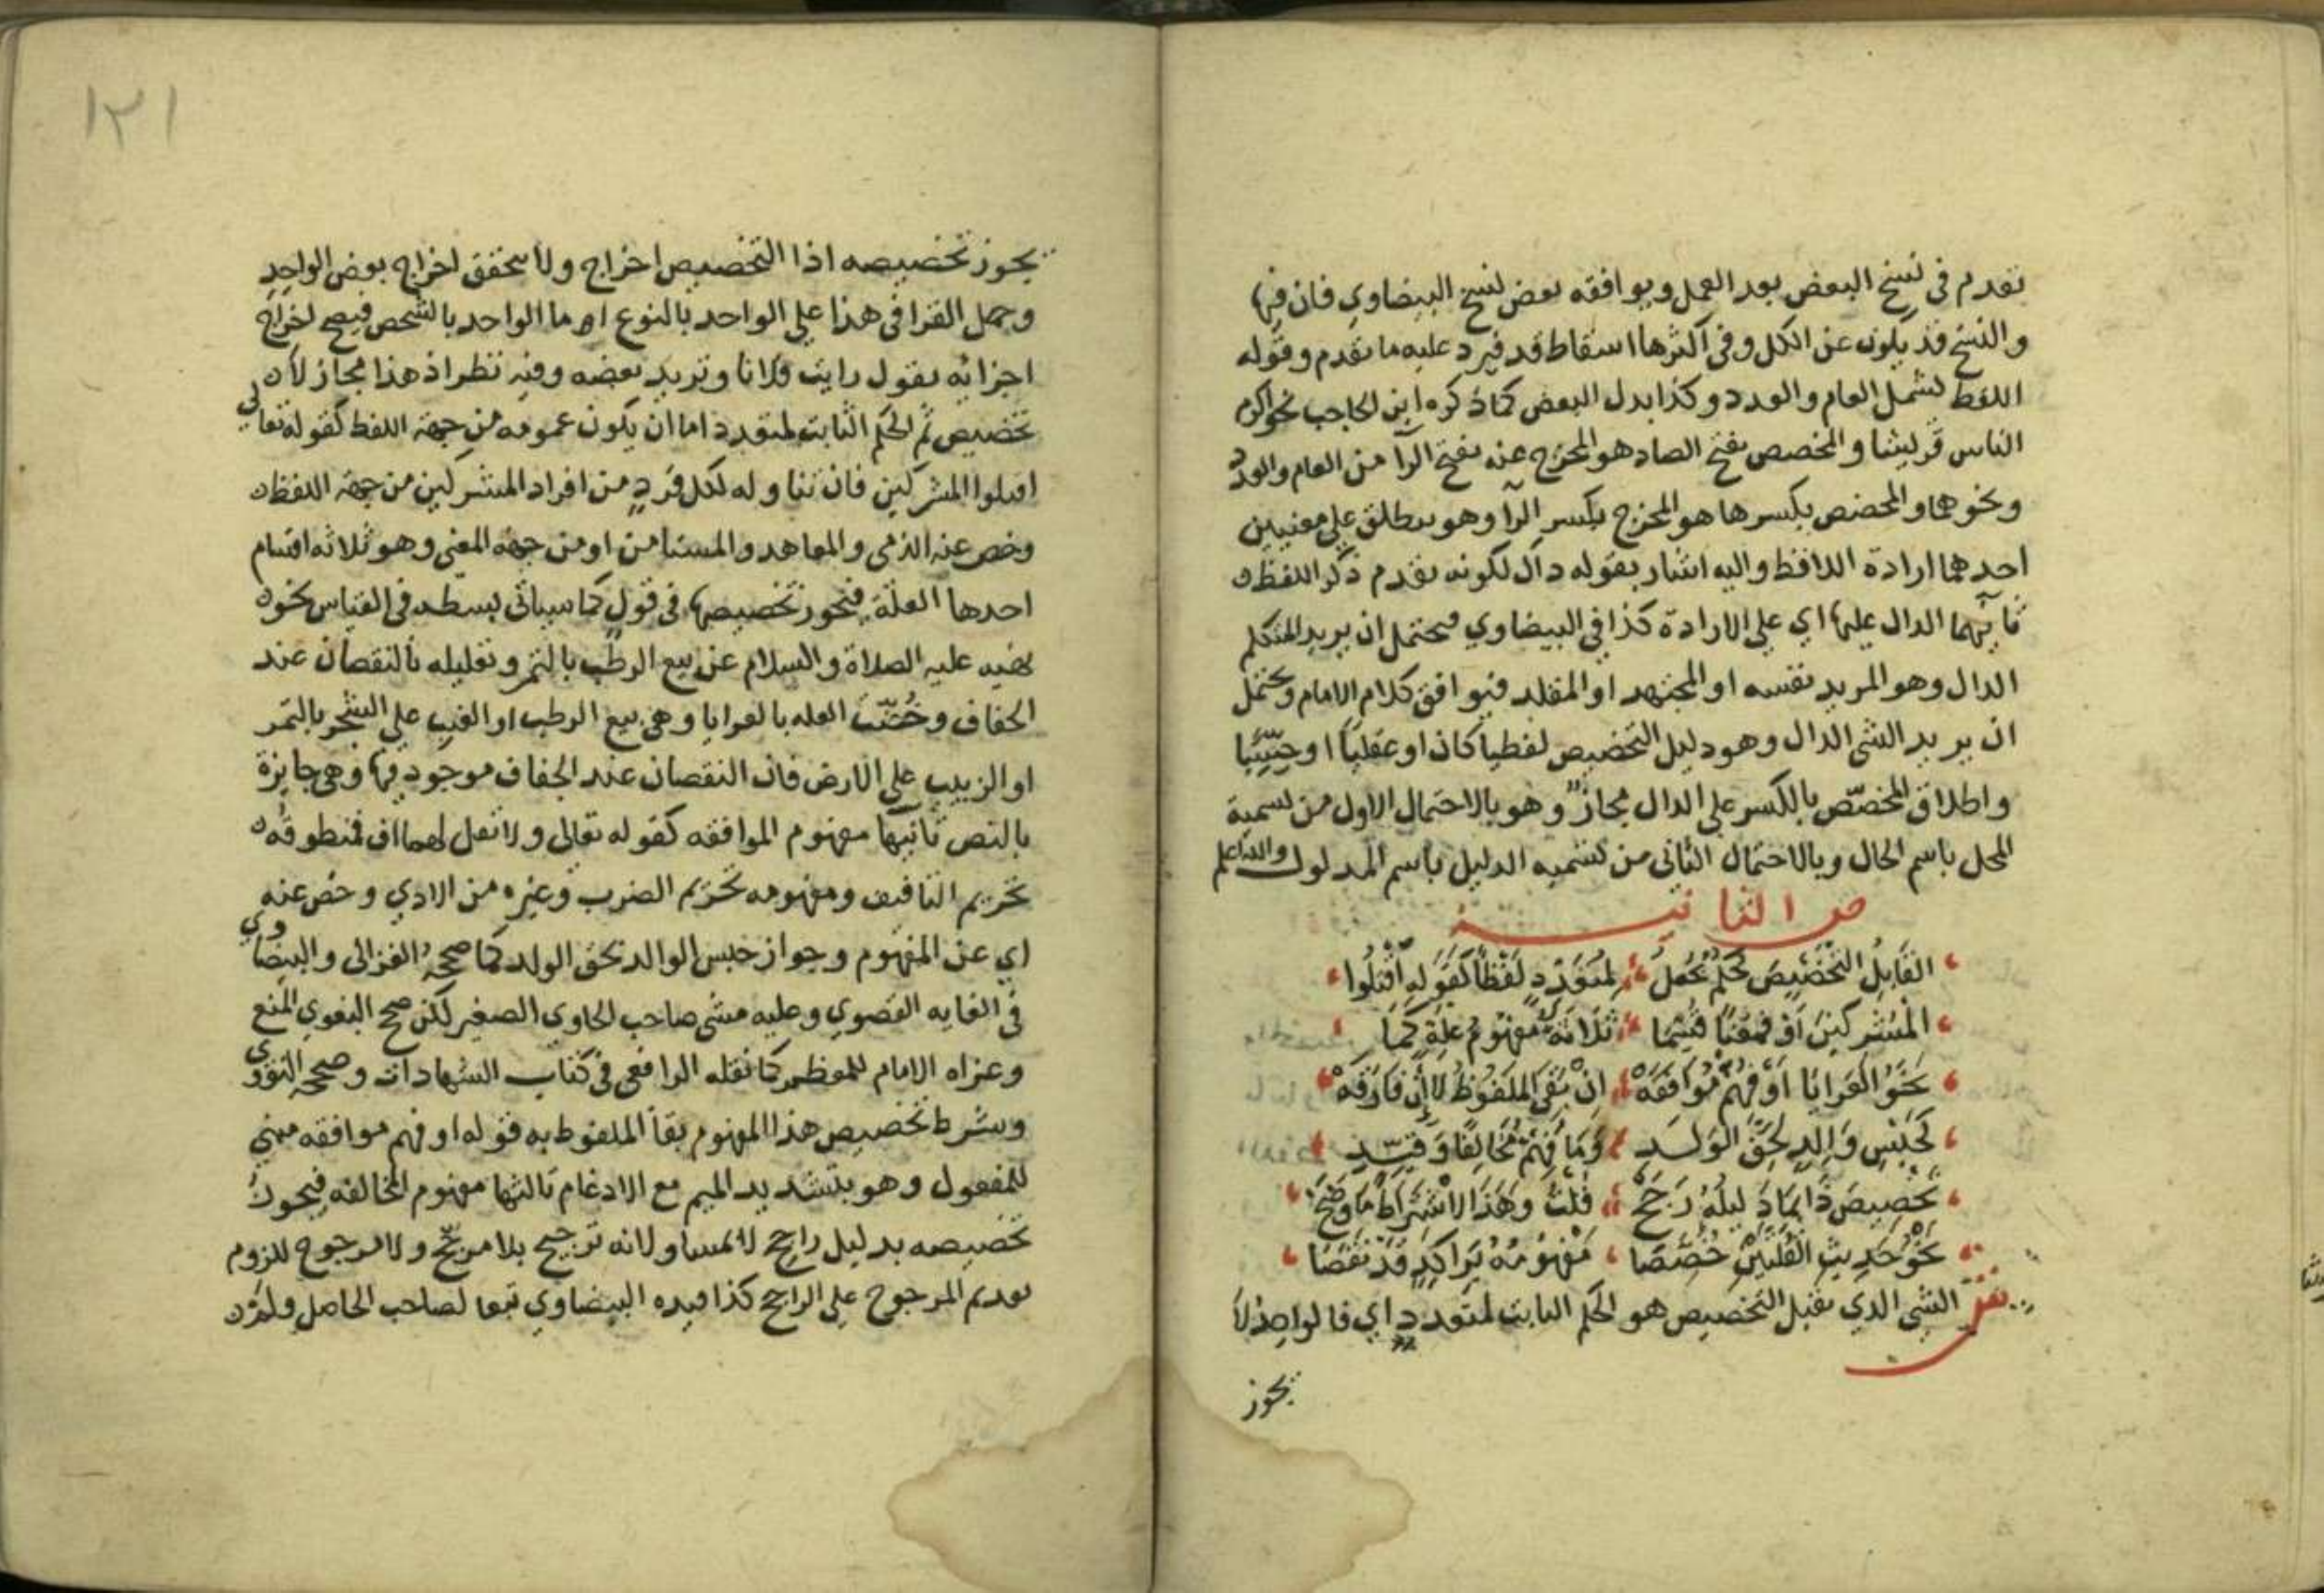 تقدم في نسخ البعض بعد العمل ويوافقه بعض نسخ البيضاوي فان فيها
والنسخ قد يكون عن الكل وفي اكثرها اسقاط قد فيرد عليه ما تقدم وقوله
اللفظ لشمل العام والعدد وكذا بدل البعض كما ذكره ابن الحاجب نحو اكرم
الناس قريشا والمخصص بفتح الصاد هو المخرج عنه بفتح الرا من العام والعدد
ونحوهما والمخصص بكسرها هو المخرج بكسر الرا وهو يطلق على معنيين
احدهما ارادة اللافظ واليه اشار بقوله دال لكونه تقدم ذكر اللفظ
ثانيهما الدال عليها اي على الارادة كذا في البيضاوي فيحتمل ان يريد المتكلم
الدال وهو المريد نفسه او المجتهد او المقلد فيوافق كلام الامام ويحتمل
ان يريد الشي الدال وهو دليل التخصيص لفظيا كان او عقليا او حسيا
واطلاق المخصّص بالكسر على الدال مجاز وهو بالاحتمال الاول من تسمية
المحل باسم الحال وبالاحتمال الثاني من تسميه الدليل باسم المدلول والله اعلم
ص الثانية
القَابِلُ التَّخْصِيْصَ حُكْمٌ لِمُتَعَدِّدٍ لَفْظًا كَقَولِهِ اقْتُلُوا
المُشْرِكِينَ اَوْ فَمَعْنًا قُسِّمَا ثَلَاثَةً مَفْهُومُ عِلَّةٍ كَمَا
نَحْوُ العَرَايَا اَوْ فُهِمْ مُوَافَقَهْ اِنْ بَقِيَ المَلفُوظُ لَا اِنْ فَارَقَهْ
كَحَبْسِ وَالِدٍ لِحَقِّ الوَلَدِ وَمَا فُهِمْ مُخَالِفًا وَقَيِّدِ
تَخْصِيصَ ذَا بِمَا دَلِيلُهُ رَجَحْ قُلْتُ وَهَذَا الاشْتِرَاطُ مَا وَضَحْ
نَحْوُ حَدِيثِ القُلَّتَيْنِ خُصِّصَا مَفْهُومُهُ بَرَاكِدٍ قَدْ نَقَصَا
ش الشي الذي يقبل التخصيص هو الحكم الثابت لمتعدد اي فالواحد لا
يجوز
١٢١
يجوز تخصيصه اذا التخصيص اخراج ولا يتحقق اخراج بعض الواحد
وحمل القرافي هذا على الواحد بالنوع اما الواحد بالشخص فيصح اخراج
اجزائه تقول رايت فلانا وتريد بعضه وفيه نظر اذ هذا مجاز لا
تخصيص ثم الحكم الثابت لمتعدد اما ان يكون عمومه من جهة اللفظ كقوله تعالى
اقتلوا المشركين فان تناوله لكل فردٍ من افراد المشركين من جهة اللفظ
وخص عنه الذمي والمعاهد والمستامن او من جهة المعنى وهو ثلاثه اقسام
احدها العلة فيجوز تخصيصها في قول كما سياتي بسطه في القياس نحو
نهيه عليه الصلاة والسلام عن بيع الرطب بالتمر وتعليله بالنقصان عند
الجفاف وخُصّت العله بالعرايا وهي بيع الرطب او العنب على الشجر بالتمر
او الزبيب على الارض فان النقصان عند الجفاف موجود فيها وهي جايزة
بالنص ثانيها مفهوم الموافقه كقوله تعالى ولا تقل لهما اف فمنطوقه
تحريم التافيف ومفهومه تحريم الضرب وغيره من الاذي وخص عنه
اي عن المفهوم وجواز حبس الوالد بحق الولد كما صححه الغزالى والبيضاوي
في الغايه القصوي وعليه مشى صاحب الحاوي الصغير لكن صحح البغوي المنع
وعزاه الامام للمعظم كما نقله الرافعي في كتاب الشهادات وصححه النووي
وشرط تخصيص هذا المفهوم بقا الملفوظ به قوله او فهم موافقه مبني
للمفعول وهو بتشديد الميم مع الادغام ثالثها مفهوم المخالفه فيجوز
تخصيصه بدليل راجح لا لمساو لانه ترجيح بلا مرجّح ولا مرجوح للزوم
تقديم المرجوح على الراجح كذا قيده البيضاوي تبعا لصاحب الحاصل ولم